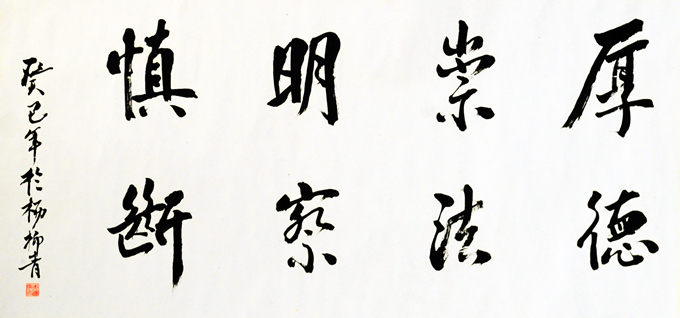 厚德
崇法
明察
慎断
癸巳年於杨柳青